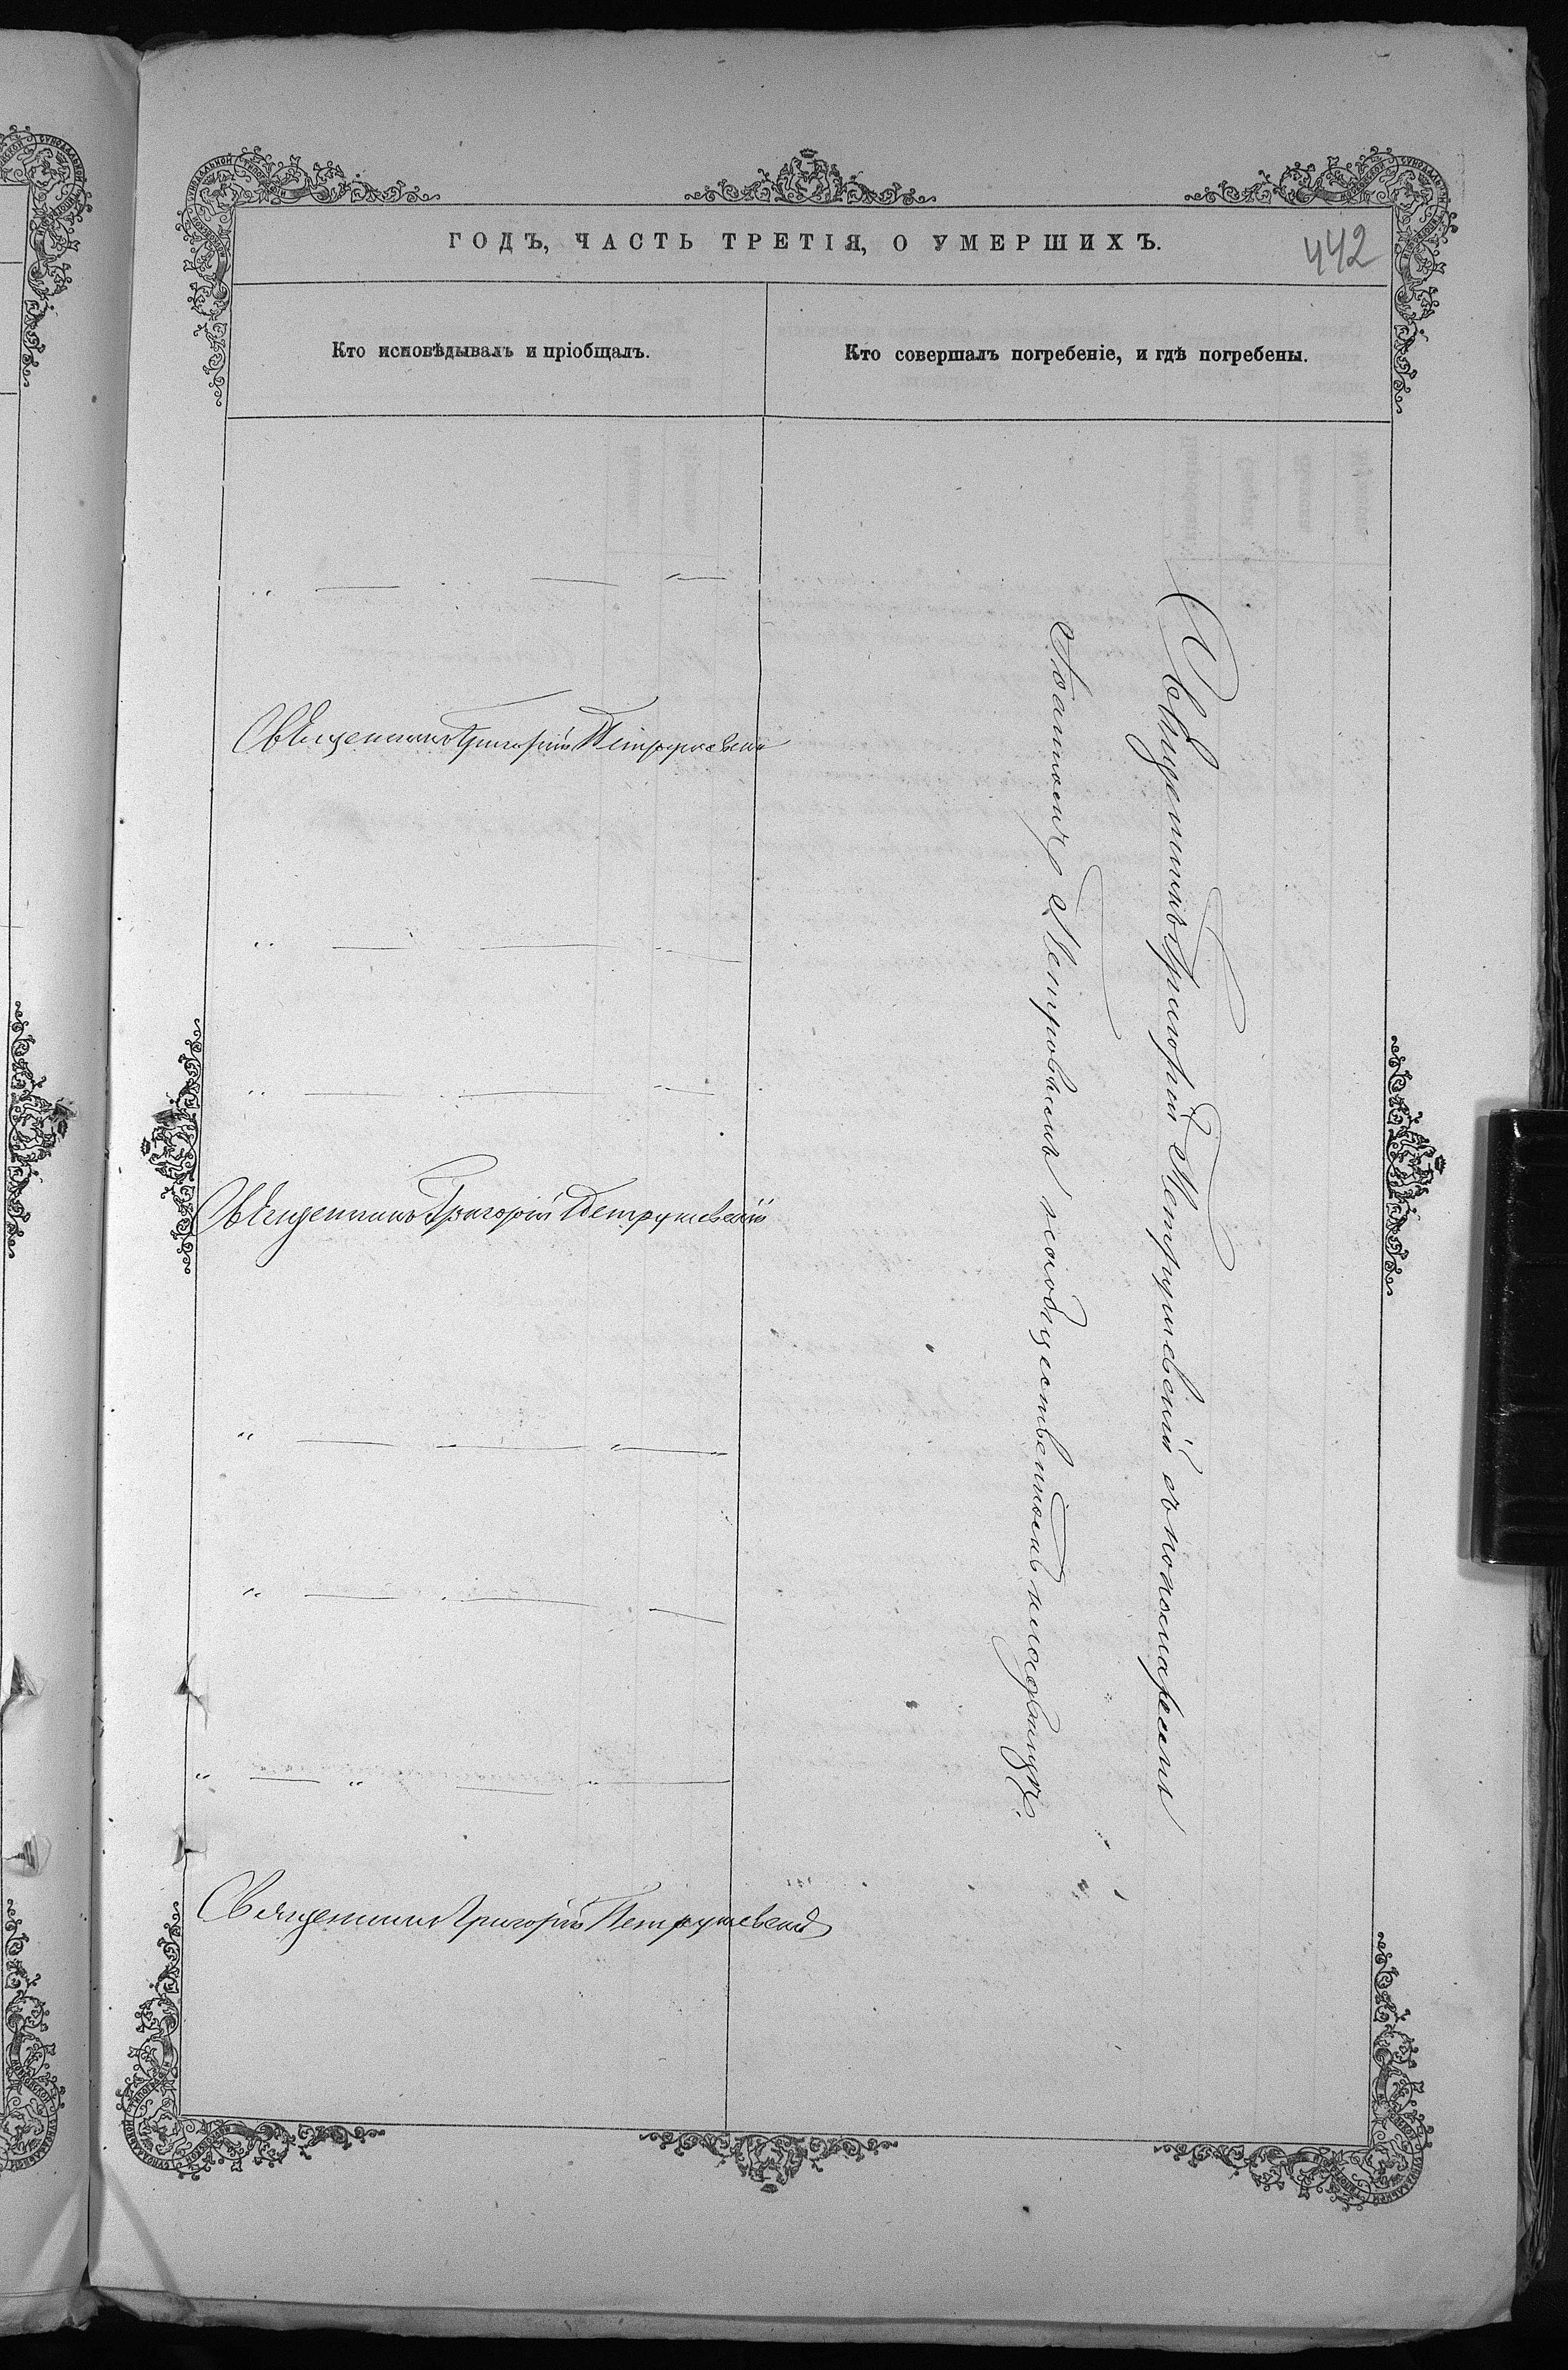 ГОДЪ, ЧАСТЬ ТРЕТІЯ, О УМЕРШИХЪ.
442
Кто исповѣдывалъ и пріобщалъ.
Кто совершалъ погребеніе, и гдѣ погребены.
Священникъ Григорій Петрушевскій
Священникъ Григорій Петрушевскій
Священникъ Григорій Петрушевскій
Священникъ Григорій Петрушевскій съ пономаремъ
Іоанномъ Петровымъ на общественномъ кладбищѣ.